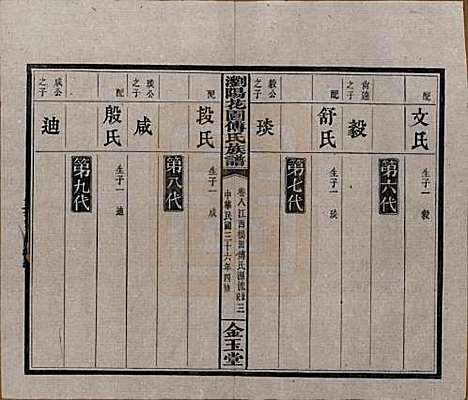 配 文氏 生子一 毅
第六代
尚達之子 毅
配 舒氏 生子一 琰
第七代
毅公之子 琰
瀏陽花園傅氏族譜
卷八 江西 傅氏源流 三
中華民國三十六年四修
金玉堂
配 段氏 生子一 咸
第八代
琰公之子 咸
配 殷氏 生子一 迪
第九代
咸公之子 迪